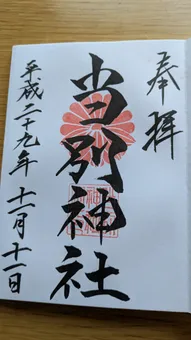 奉拝
当別神社
平成二十九年 十一月十一日